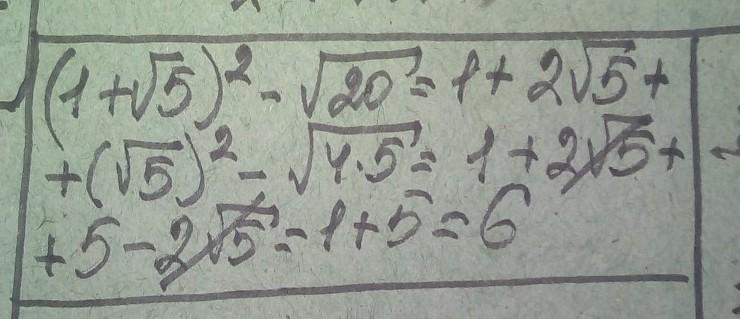 (1+√5)² - √20 = 1 + 2√5 +
+ (√5)² - √4·5 = 1 + 2√5 +
+ 5 - 2√5 = 1 + 5 = 6